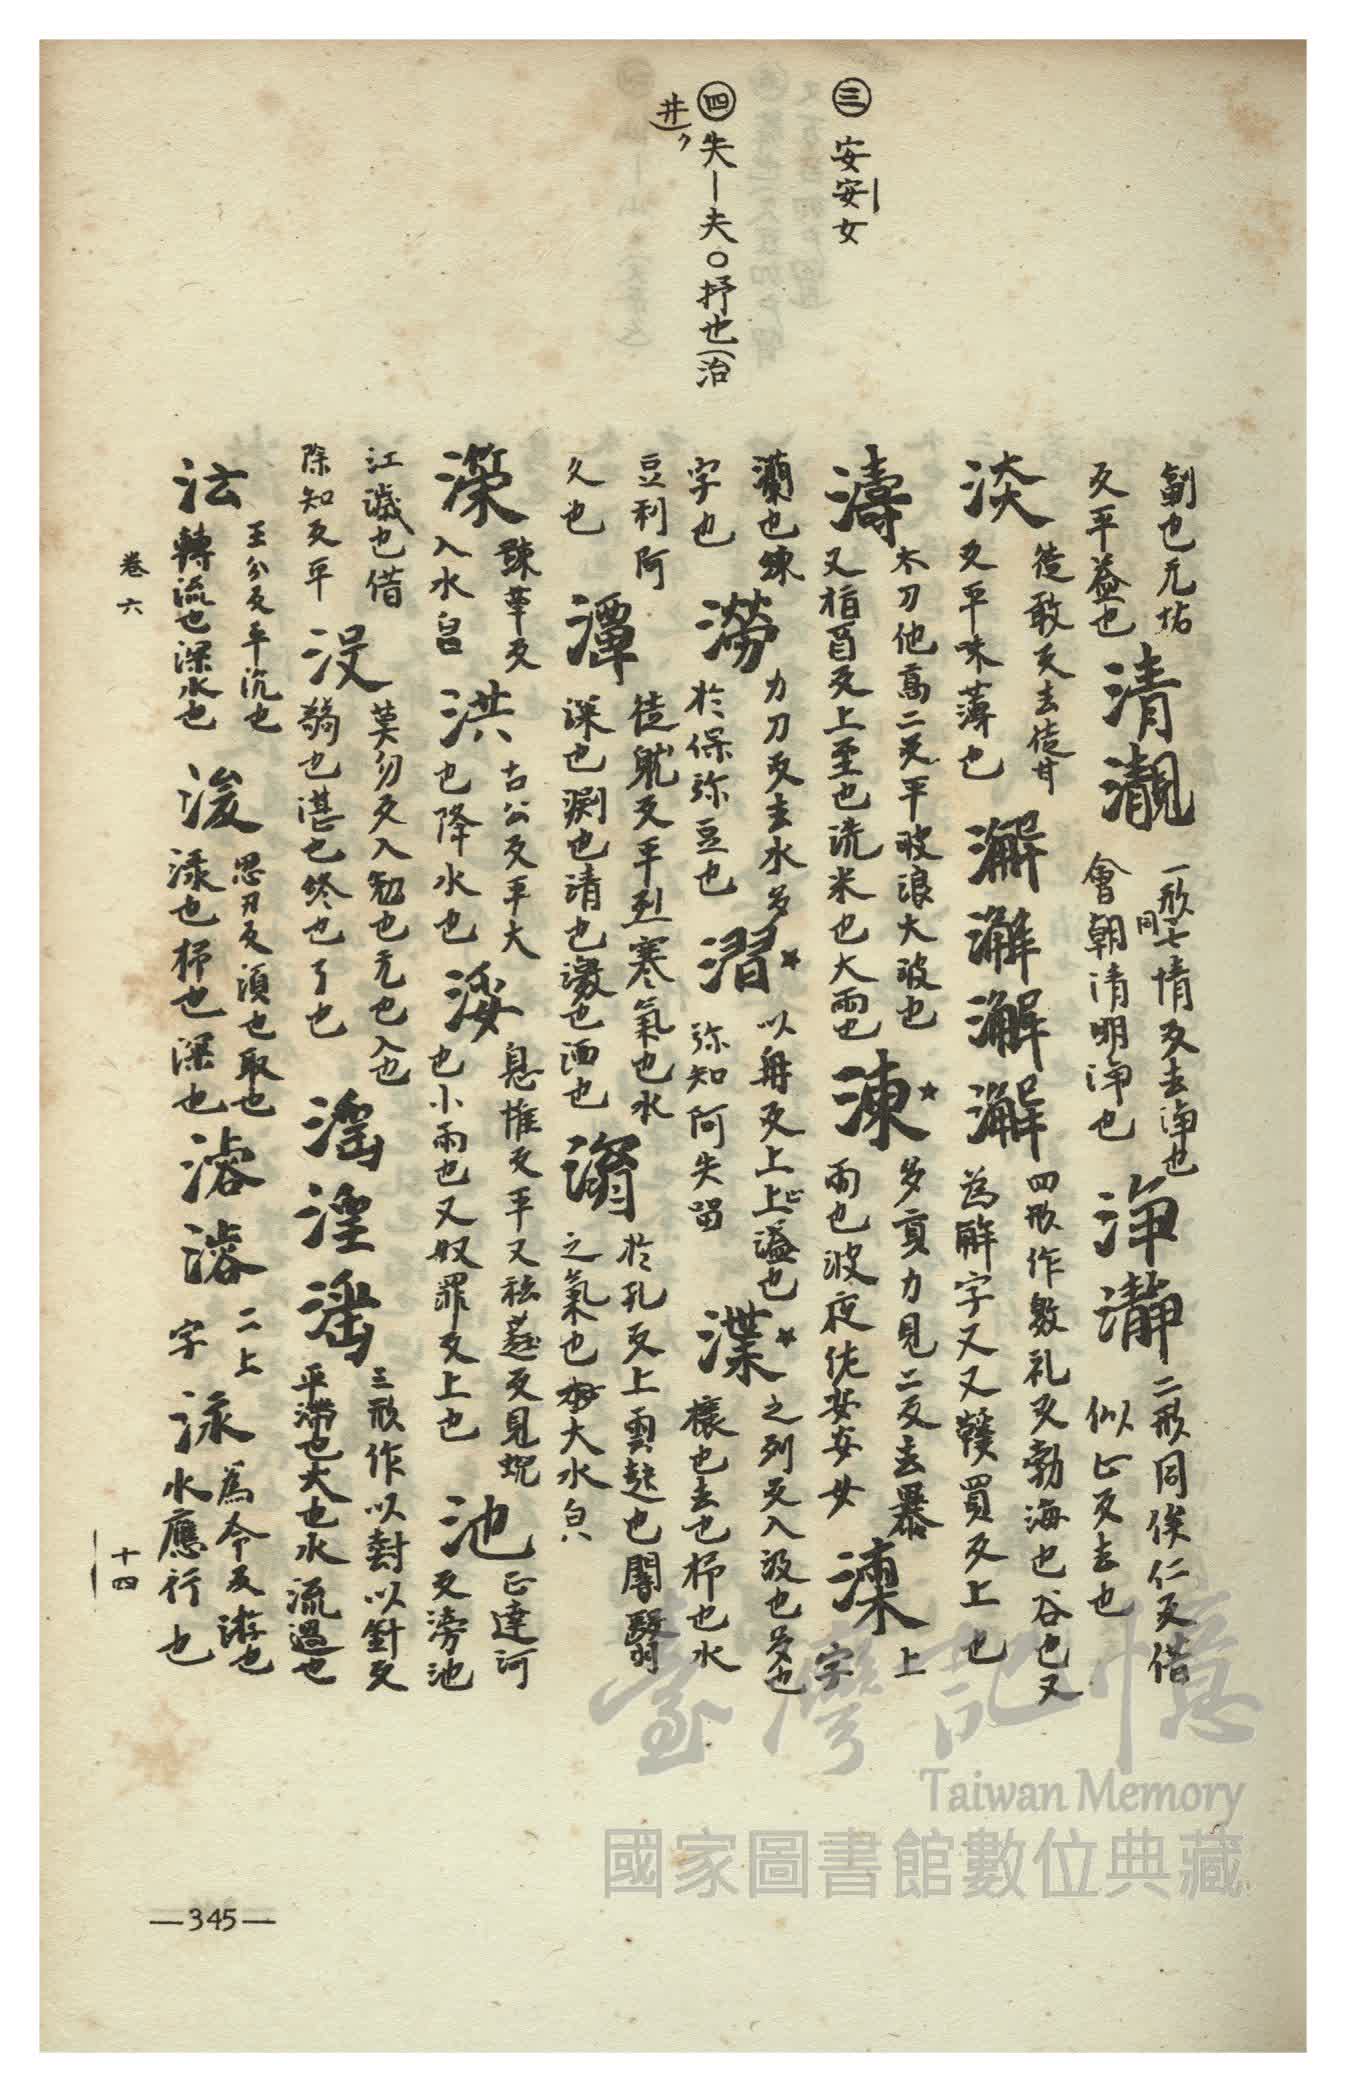 ㊂ 安安女
㊃ 失—夫〇抒也(治
副也元坫
反平益也
清瀞
一形七情反去浄也
同
會朝清明浄也
浄瀞
二形同俟仁反借
似正反去也
淡
徒敢反去徒甘
反平味薄也
澥澥澥澥
四形作數礼反勃海也谷也又
為解字又又韄買反上也
濤
太刀他高二反平波浪大波也
又柏酉反上至也洗米也大雨也
涷
多貢力見二反去暴
雨也波夜佐安安女
湅
上
字
瀾也練
字也
澇
力刀反去水多
於保弥豆也
溍
以舟反上上謐也
弥知阿失留
渫
之列反入汲也多也
穣也去也抒也水
豆利阿
久也
潭
徒躭反平烈寒氣也水
深也淵也清也邊也洒也
滃
於孔反上雲起也闇翳
之氣也大水皃
濴
疎革反
入水皃
洪
古公反平大
也降水也
浽
息惟反平又
也小雨也又奴罪反上也
池
正達河
反滂池
江滅也借
除知反平
没
莫勿反入勉也元也入也
溺也湛也終也了也
滛淫滛
三形作以對以針反
平滞也大也水流過也
沄
王分反平沉也
轉流也深水也
浚
思刃反湏也取也
淥也抒也深也
濬濬
二上
字
泳
為命反游也
水應行也
卷六
十四
—345—
臺灣記憶
Taiwan Memory
國家圖書館數位典藏